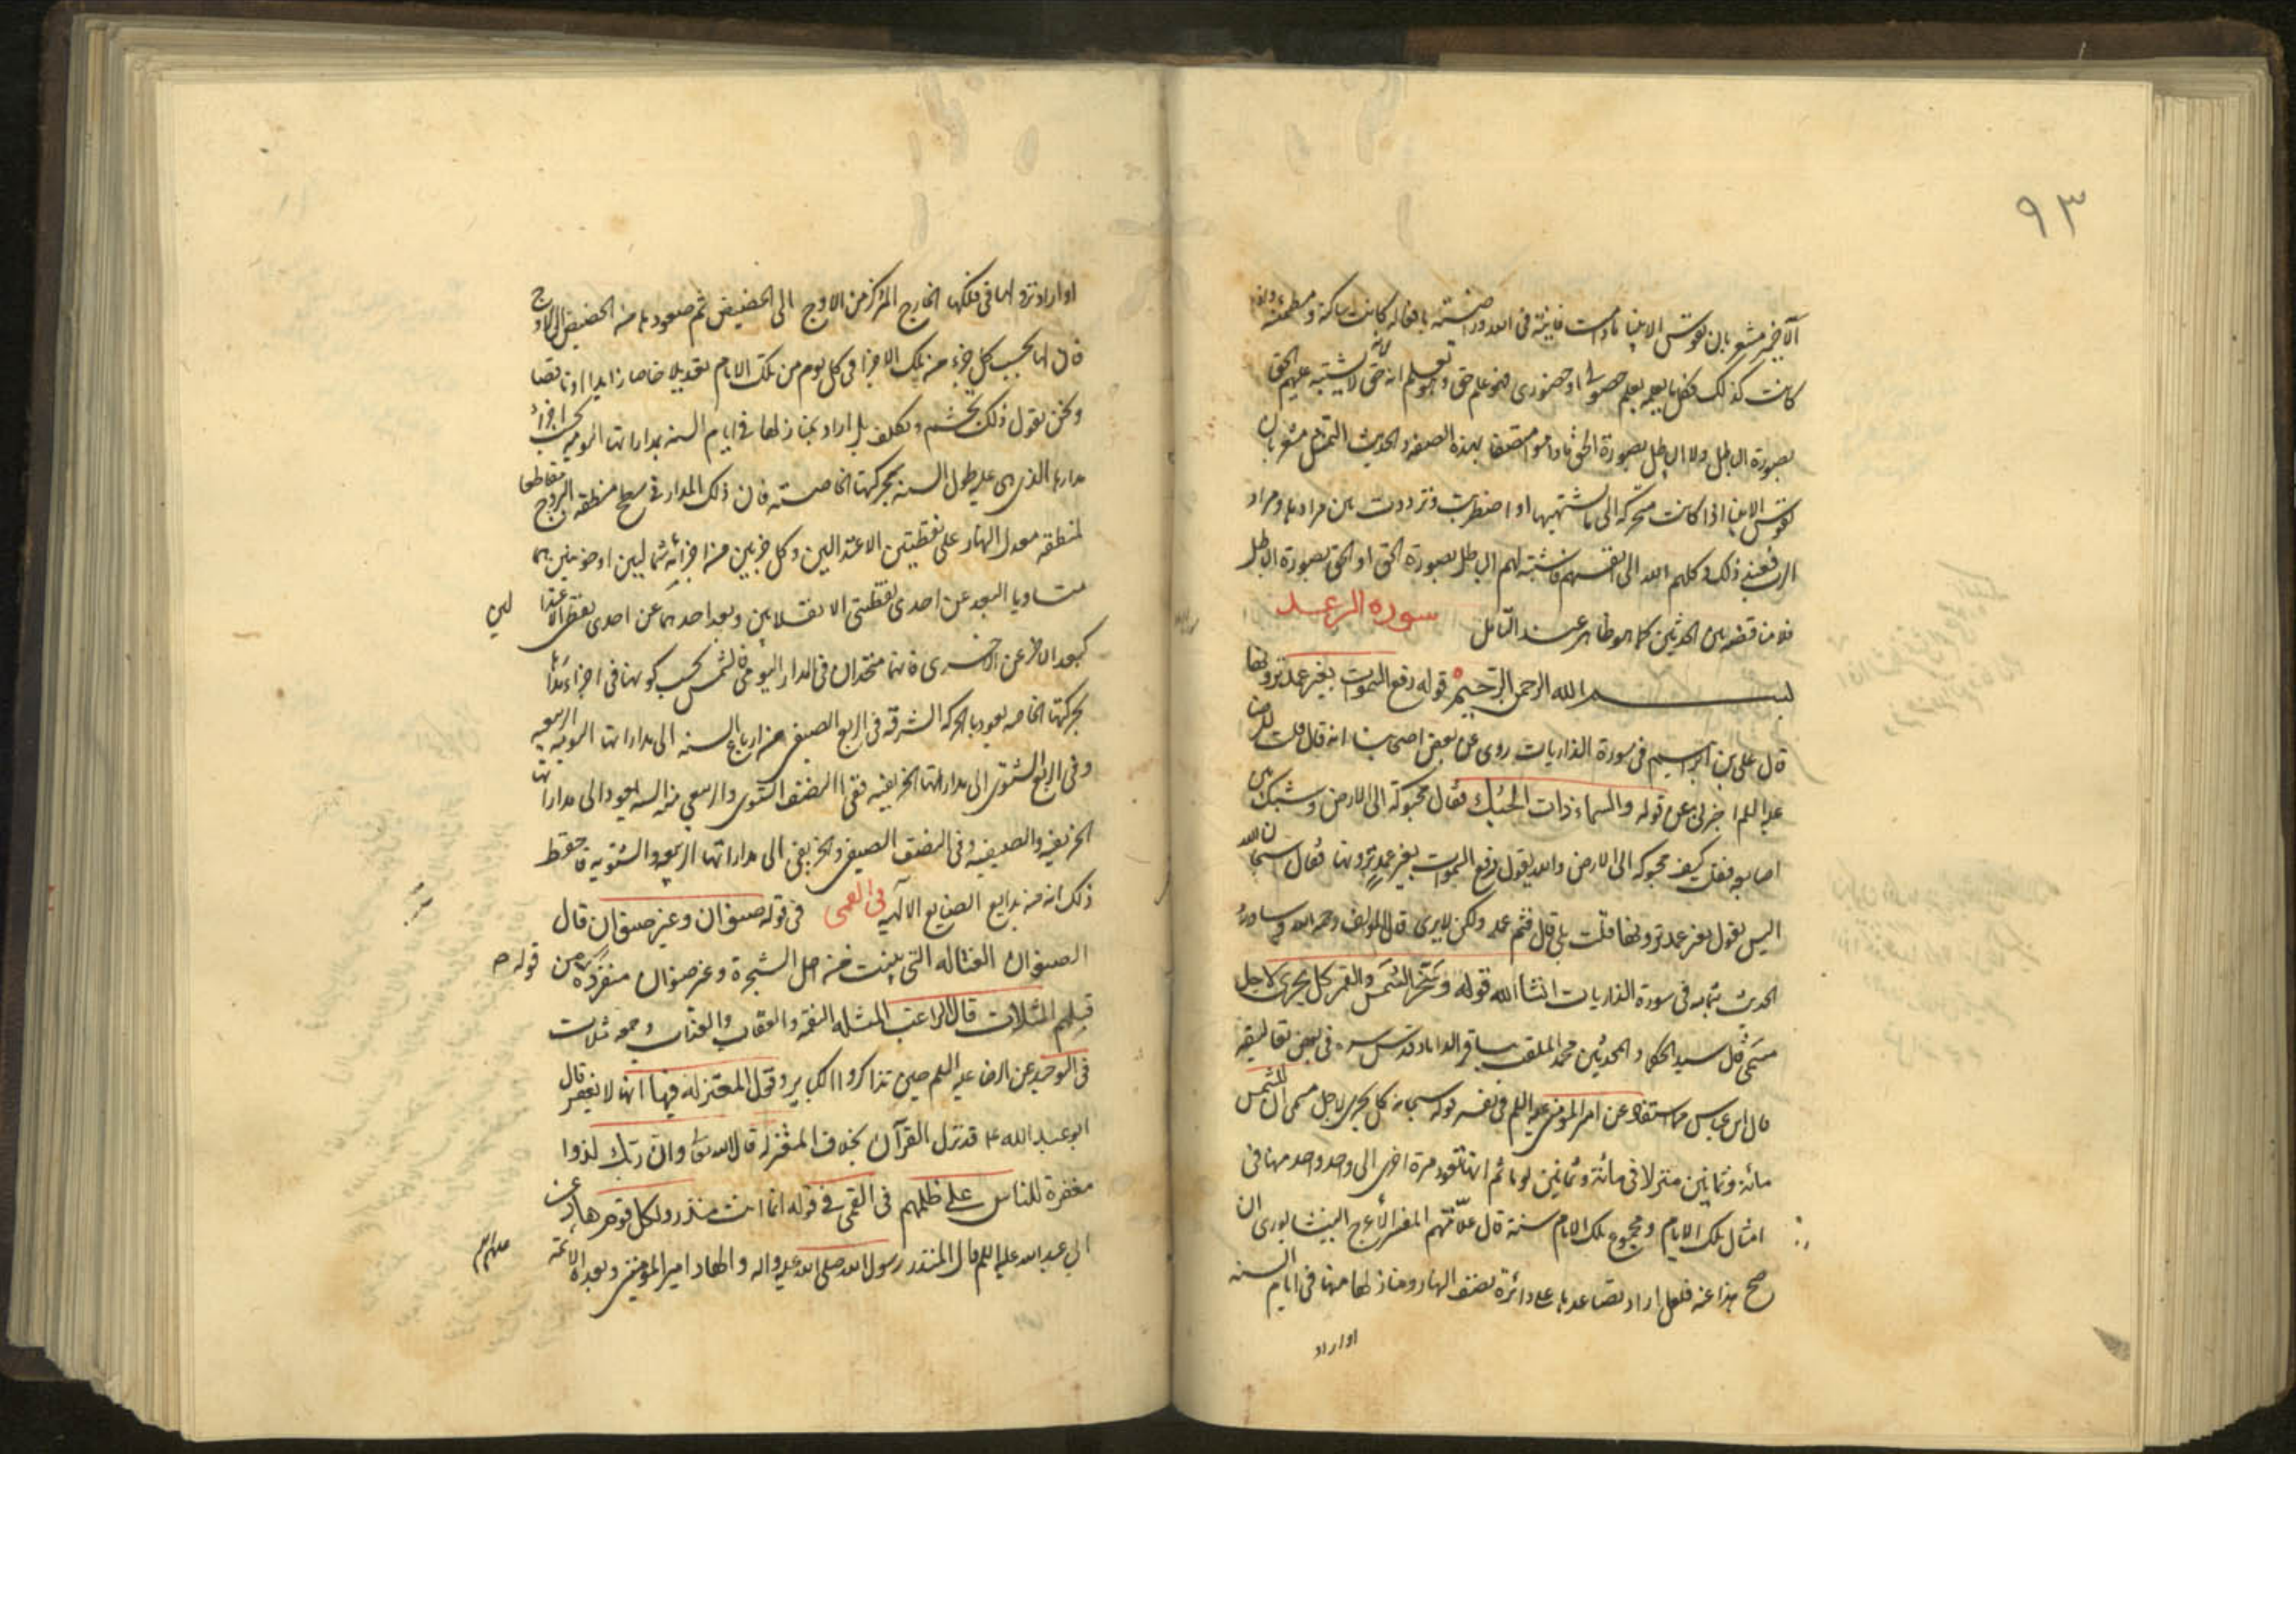 ٩٣
الآخر مشعر بان نفوس الانبياء ما دامت فانية فى الله وراضية بافعاله كانت ساكنة ومطمئنة واذا
كانت كذلك فكل ما يعلمه بعلم حصولى او حضورى فهو علم حق وهو يعلم انه حق لانه لا يشتبه عليهم الحق
بصورة الباطل ولا الباطل بصورة الحق ما داموا متصفا بهذه الصفه والحديث الثانى مشعر بان
نفوس الانبياء اذا كانت متحركة الى ما تشتهيها او اضطربت وترددت بين مرادها ومراد
الله فعند ذلك وكلهم الله الى انفسهم فاشتبه لهم الباطل بصورة الحق او الحق بصورة الباطل
فلا مناقضه بين الحديثين كما هو ظاهر عند التأمل سورة الرعد
بسم الله الرحمن الرحيم قوله رفع السموات بغير عمد ترونها
قال على بن ابراهيم فى سورة الذاريات روى عن بعض اصحابنا انه قال قلت للرضا
عليه السلم اخبرنى عن قوله والسماء ذات الحبك فقال محبوكة الى الارض وشبك بين
اصابعه فقلت كيف محبوكه الى الارض والله يقول رفع السموات بغير عمد ترونها فقال سبحان الله
اليس يقول بغير عمد ترونها فقلت بلى قال فثم عمد ولكن لا يرى قال المولف رحمه الله وسياتى
الحديث بتمامه فى سورة الذاريات انشاالله قوله وسخر الشمس والقمر كل يجرى لاجل
مسمى قال سيد الحكماء والمحدثين محمد الملقب بباقر الداماد قدس سره فى بعض تعاليقه
قال ابن عباس مما استفاد عن امير المومنين عليه السلم فى تفسير قوله سبحانه كل يجرى لاجل مسمى ان للشمس
مائة وثمانين منزلا فى مائة وثمانين يوما ثم انها تعود مرة اخرى الى واحد واحد منها فى
امثال تلك الايام ومجموع تلك الايام سنة قال علامتهم المفسر الاعرج النيشابورى ان
صح هذا عنه فلعل اراد تصاعدها على دائرة نصف النهار ومنازلها منها فى ايام السنه
او اراد
او اراد نزولها فى فلكها الخارج المركز من الاوج الى الحضيض ثم صعودها منه الحضيض الى الاوج
فان لها بحسب كل جزء من تلك الاجزا فى كل يوم من تلك الايام تعديلا خاصا زايدا او ناقصا
ونحن نقول ذلك تجشم وتكلف بل اراد بمنازلها فى ايام السنه مداراتها اليوميه بحسب اجزاء
مدارها الذى هى عليه طول السنه بحركتها الخاصته فان ذلك المدار فى سطح منطقه البروج مقاطعا
لمنطقه معدل النهار على نقطتين الاعتدالين وكل جزئين من اجزائه شماليين او جنوبيين هما
متساويا البعد عن احدى نقطتى الانقلابين وبعد احدهما عن احدى نقطتى الاعتدا لين
كبعد الاخر عن الاخرى فانهما متحدان فى المدار اليومى فالشمس بحسب كونها فى اجزاء مدارها
بحركتها الخاصه يعود بالحركه الشرقيه فى الربع الصيفى من ارباع السنه الى مداراتها اليوميه الربيعيه
وفى الربع الشتوى الى مداراتها الخريفيه ففى النصف الشتوى والربيعى من السنه يعود الى مداراتها
الخريفيه والصيفيه وفى النصف الصيفى والخريفى الى مداراتها الربيعيه والشتويه فاحتفظ
ذلك انه من بدايع الصنايع الالهيه فى القمى فى قوله صنوان وغير صنوان قال
الصنوان الفتاله التى ينبت من اصل الشجرة وغير صنوان متفرده قوله من
قبلهم المثلات قال الراغب المثله النقمه والعقاب والعذاب وجمعه مثلات
فى التوحيد عن الرضا عليه السلم حين تذاكروا الكباير وقول المعتزله فيها انها لا يغفر قال
ابو عبد الله ع قد نزل القرآن بخلاف المعتزله قال الله تعالى وان ربك لذوا
مغفرة للناس على ظلمهم فى القمى فى قوله انما انت منذر ولكل قوم هاد عن
ابى عبد الله عليه السلم قال المنذر رسول الله صلى الله عليه واله والهاد امير المومنين وبعده الائمة عليهم السلم